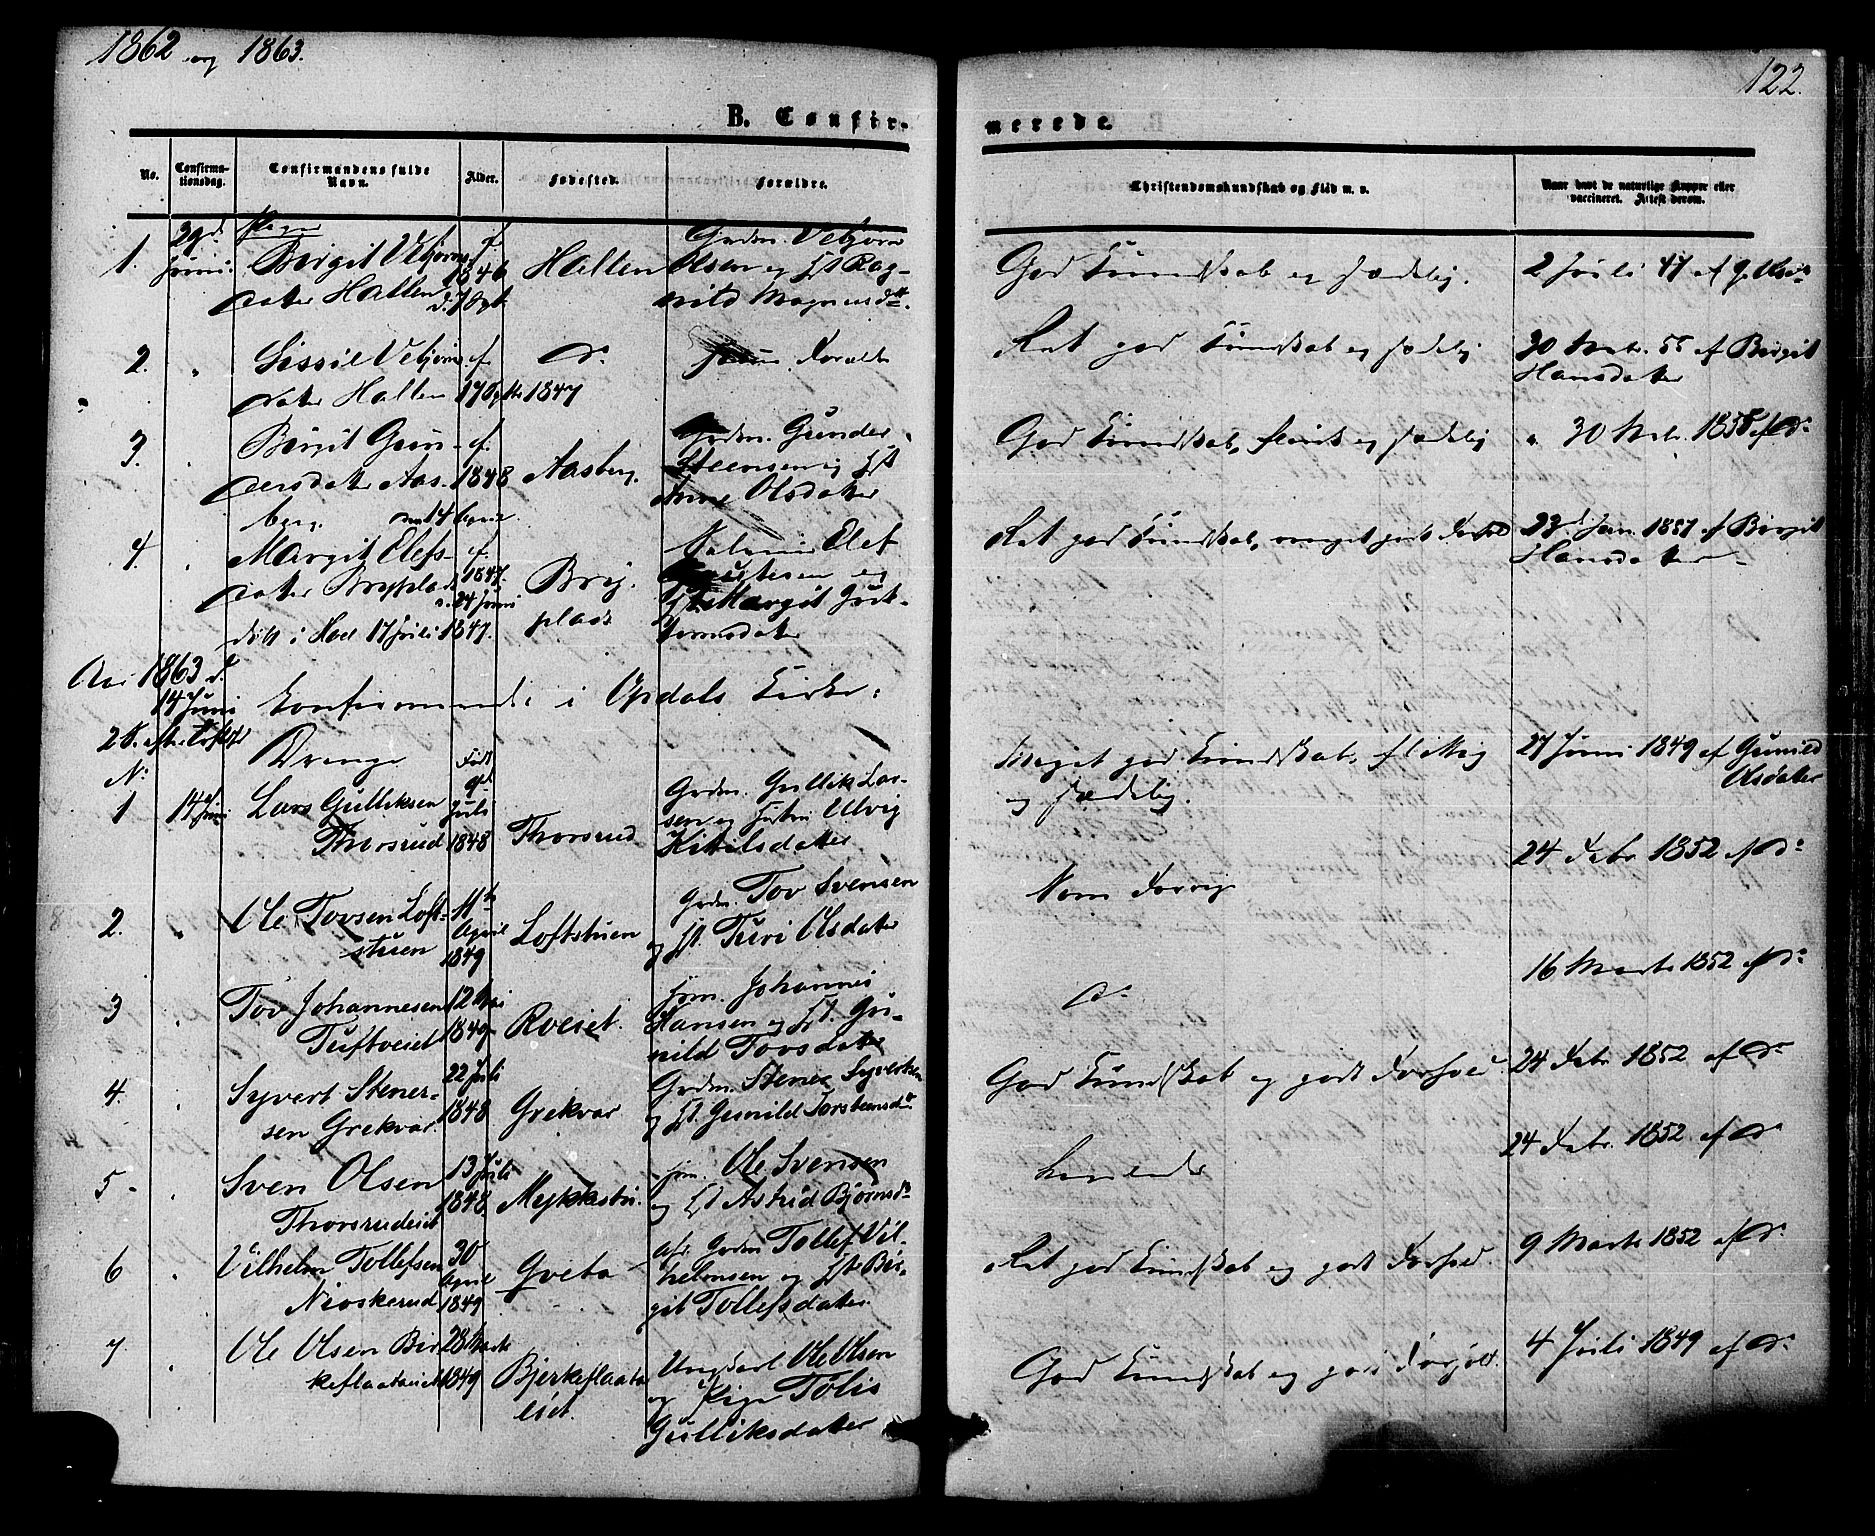 1862 og 1863.
122.
B. Confirmerede.
No.
Confirmationsdag.
Confirmandens fulde Navn.
Alder.
Fødested.
Forældre.
Christendomskundskab og Flid m. v.
Naar havt de naturlige Kopper eller vaccineret. Attest derom.
Piger
1. 29d Juni. Birgit Vebjørnsdatter Hallen f. 1846 d. 7 Sept. Hallen Grdm. Vebjørn Olsen og Hst. Ragnild Magnusdtr. God Kundskab og sædelig. 2 Juli 47 af G. Olsdr
2. " Sissil Vebjørnsdatter Hallen f. 17 Sptbr 1847 do. Forældr Ret god Kundskab og sædelig 30 55 af Birgit Hansdatter
3. " Birgit Gundersdatter Aasberg. f. 1848 den 14 April Aasberg. Grdm. Gunder Steensen og Hst. Anne Olsdatter God Kundskab, og sædelig " 30 1855 af Do
4. " Margit Elefsdatter Brypplads f. 1847. 24 Juni Bryplads Elef Knutesen og Hst. Margit datter
døbt i Hoel 17 Juli 1847.
Ret god Kundskab, meget godt Forhold 23d Jan. 1857 af Birgit Hansdatter
Aar 1863 d. 14 Juni Confirmerede i Opdals Kirke:
2 S. efter
No Drenge Født
1 14 Juni Lars Gulliksen Thorsrud 9d Juli 1848 Thorsrud Grdm. Gullik Larsen og Hustru Ulvig Kitilsdatter Meget god Kundskab, flittig og sædelig. 27 Juni 1849 af Gunild Olsdatter
2. " Ole Tovsen Loftstuen 11te April 1849 Loftstuen Grdm. Tov Svensen og Hst. Turi Olsdatter Som Forrige 24 Febr 1852 af Do
3 " Tov Johannesen Tuftveiet 12 Mai 1849 Rveiet. Johannes Hansen og Hst. Gunild Tovsdatter Do 16 Marts 1852 af Do
4. " Syvert Stenersen Grekvar 22 Juli 1848 Grekvar Grdm. Stener Syvertsen og Hst. Gunild Torsteensdtr God Kundskab og godt Forhold. 24 Febr 1852 af Do
5 " Sven Olsen Thorsrudeiet 13 Juli 1848 Mykkstu. Ole Svensen og Hst. Astrid Bjørnsdr 24 Febr. 1852 af Do
6 " Vilhelm Tollefsen Nioskerud 30 April 1849 Gveta Grdm Tollef Vilhelmsen og Hst. Birgit Tollefsdatter Ret god Kundskab og godt Forhold. 9 Marts 1852 af Do
7 " Ole Olsen Birkeflaataeiet 28 Marts 1849 Bjerkeflaataeiet. Ungkarl Ole Olsen og Pige Tolis Gulliksdatter God Kundskab og god Forhold. 4 Juli 1849 af Do